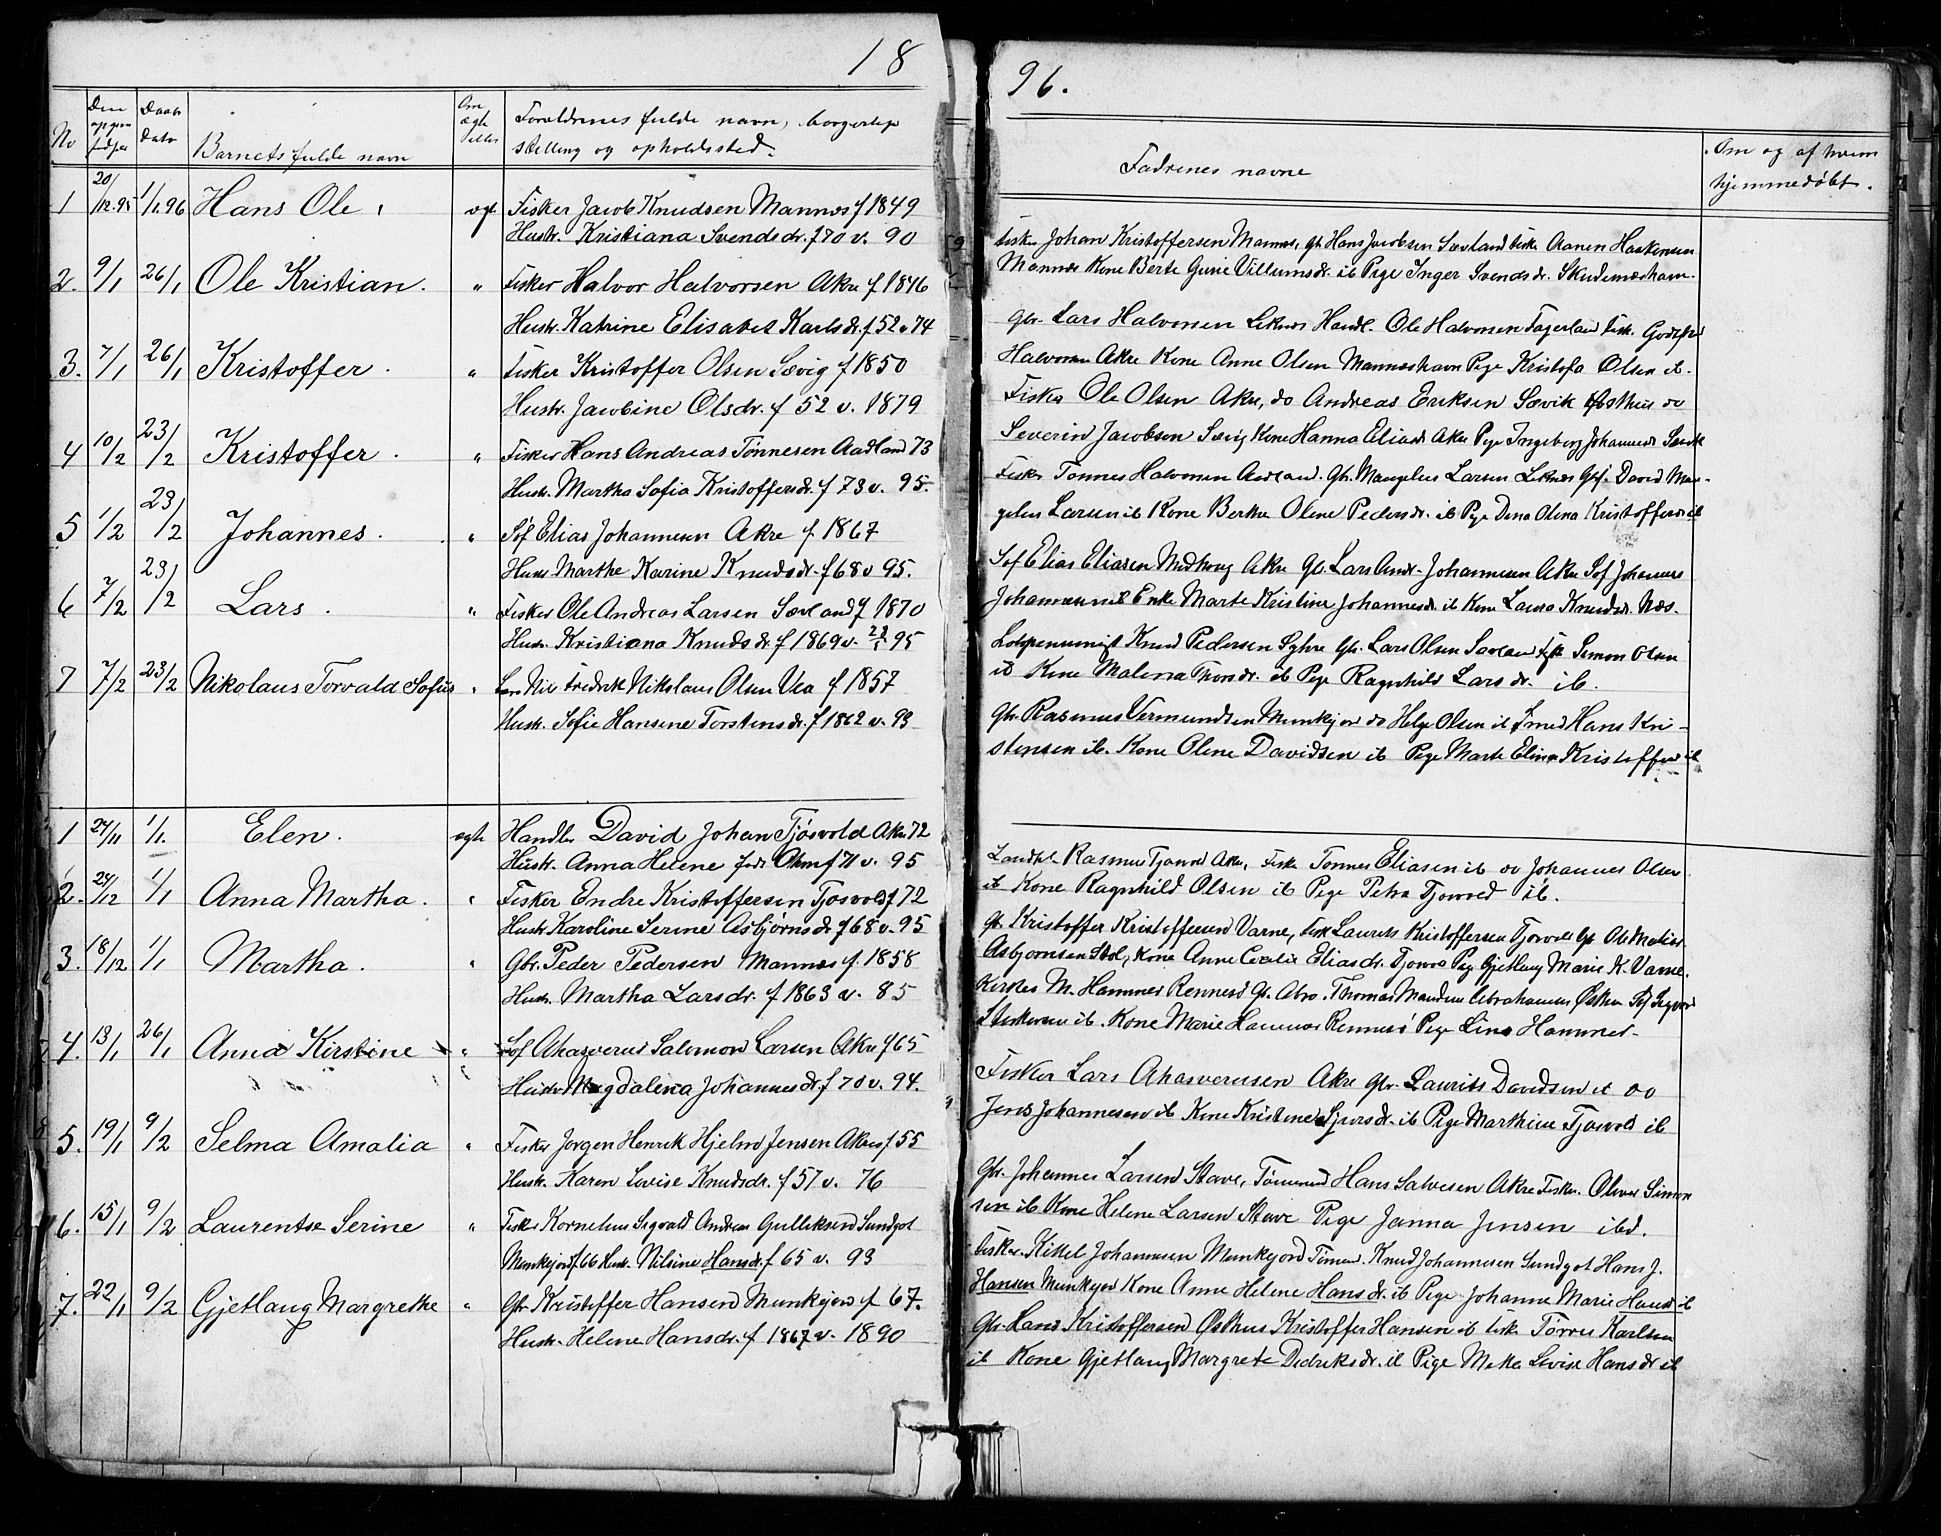 18
No
Den
opgivn
fødsel
Daabs
dato
Barnets fulde navn
Om
ægte
eller
Foreldrenes fulde navn, borgerlige
stilling og opholdssted.
1 20/12.95 1/1.96 Hans Ole. ægt Fisker Jacob Knudsen Mannes f 1849
Hustr. Kristiana Svendsdr. f 70 v. 90
2. 9/1 26/1 Ole Kristian. " Fisker Halvor Halvorsen Akre f. 1846
Hustr. Katrine Elisabet Karlsdr. f 52 v 74
3. 7/1 26/1 Kristoffer. " Fisker Kristoffer Olsen Sævig f 1850
Hustr. Jacobine Olsdr. f 52 v. 1879
4 10/2 23/2 Kristoffer. " Fisker Hans Andreas Tønnesen Aadland 73
Hustr. Martha Sofia Kristoffersdr. f 73 v. 95.
5 1/2 23/2 Johannes. " Søf Elias Johannesen Akre f 1867
Hustr Marthe Karine Knudsdr. f 68 v 95.
6 7/2 23/2 Lars. " Fisker Ole Andreas Larsen Sævland f 1870
Hustr. Kristiana Knudsdr. f 1869 v. 95
7 7/2 23/2 Nikolaus Torvald Sofus " Fredrik Nikolaus Olsen Vea f 1857
Hustr. Sofie Hansene Torstensdr. f 1862 v. 93
1 24/11 1/1. Elen. ægte Handlr David Johan Tjøsvold Akre 72
Hustr. Anna Helene født f 71 v. 95
2. 24/12 1/1 Anna Martha. " Fisker Endre Kristoffersen Tjosvold f 72
Hustr Karoline Serine Asbjørnsdr f 68 v. 95
3. 18/12 1/1 Martha. " Gbr. Peder Pedersen Mannes f. 1858
Hustr. Martha Larsdr. f 1863 v. 85
4. 13/1 26/1 Anna Kirstine " Søf Ahasverus Salomon Larsen Akre f 65
Hustr Magdalena Johannesdr. f 70 v. 94.
5. 19/1 9/2 Selma Amalia " Fisker Jørgen Henrik Hjelm Jensen Akre f 55
Hustr. Karen Lovise Knudsdr. f 57 v. 76
6. 15/1 9/2 Laurentse Serine " Fisker Kornelius Sigvald Andreas Gulliksen Sundgot
Munkejord f 66 Hustr. Nilsine Hansdr. f 65 v. 93
7. 22/1 9/2 Gjetlaug Margrethe " Gbr Kristoffer Hansen Munkejord f 67.
Hustr. Helene Hansdr. f 1867 v. 1890
96.
Fadrenes navne
Om og af hvem
hjemmedøbt.
Fisker Johan Kristoffersen Mannes, Gbr Hans Jacobsen Sævland Fisk Aanen Haakonsen
Mannes Kone Berte Gurie Villumsdr. ib Pige Inger Svendsdr. Skudesneshavn.
Gbr. Lars Halvorsen Liknes Handl. Ole Halvorsen Fagerland Fisk. Godtfred
Halvorsen Akre Kone Anne Olsen Manneshavn Pige Kristofa Olsen ib.
Fisker Ole Olsen Akre, do Andreas Eriksen Sævik Østhus do
Severin Jacobsen Sævig Kone Hanna Eliasdr Akre Pige Ingeborg Johannesdr
Fisker Tønnes Halvorsen Aadland. Gbr. Mangelus Larsen Liknes Gbf. David Man-
gelus Larsen ib Kone Berthe Olene Pedersdr. ib Pige Dena Olena Kristoffersdr ib
Søf Elias Eliasen Medhaug Akre Gbr. Lars Andr. Johannesen Akre Søf Johannes
Johannesen ib Enke Marte Kristine Johannesdr. ib Kone Laura Knudsdr. Næs.
Knud Pedersen Syhre Gbr. Lars Olsen Sævland Fisk Simon Olsen
ib Kone Malena Thorsdr. ib Pige Ragnhild Larsdr. ib.
Gbr. Rasmus Vermundsen Munkejord do Helge Olsen ib Smed Hans Kri-
stensen ib. Kone Olene Davidsen ib Pige Marte Elina Kristoffersd ib
Landhl. Rasmus Tjøsvold Akre, Fisk Tønnes Eliasen ib do Johannes Olsen
ib Kone Ragnhild Olsen ib Pige Petra Tjosvold ib.
Gbr. Kristoffer Kristoffersen Varne, Fisk Laurits Kristoffersen Tjosvold Gbr Ole Matias
Asbjørnsen Stol, Kone Anne Cecilie Eliasdr. Tjosvold Pige Gjetlaug Marie K. Varne.
Kirkes. M. Hammer Rennesø Gbr. Abr. Thomas Abrahamsen Østhus Søf Sigvard
ib. Kone Marie Hammer Rennesø Pige Lina Hammer.
Fisker Lars Ahasverusen Akre Gbr. Laurits Davidsen ib do
Jens Johannesen ib Kone Kristine Sjursdr. ib Pige Marthine Tjosvold ib
Gbr. Johannes Larsen Stave, Tømmermd Hans Salvesen Akre Fisker. Oliver Simon
sen ib Kone Helene Larsen Stave Pige Janna Jensen ibd.
Fisker Kittel Johannesen Munkejord Tømmerm. Knud Johannesen Sundgot Hans J.
Hansen Munkejord Kone Anne Helene Hansdr. ib Pige Johanne Marie Hansd ib
Gbr. Hans Kristoffersen Østhus Kristoffer Hansen ib Fisk Tørres Karlsen
ib Kone Gjetlaug Margrete Dedriksdr. ib Pige Meka Lovise Hansdr ib